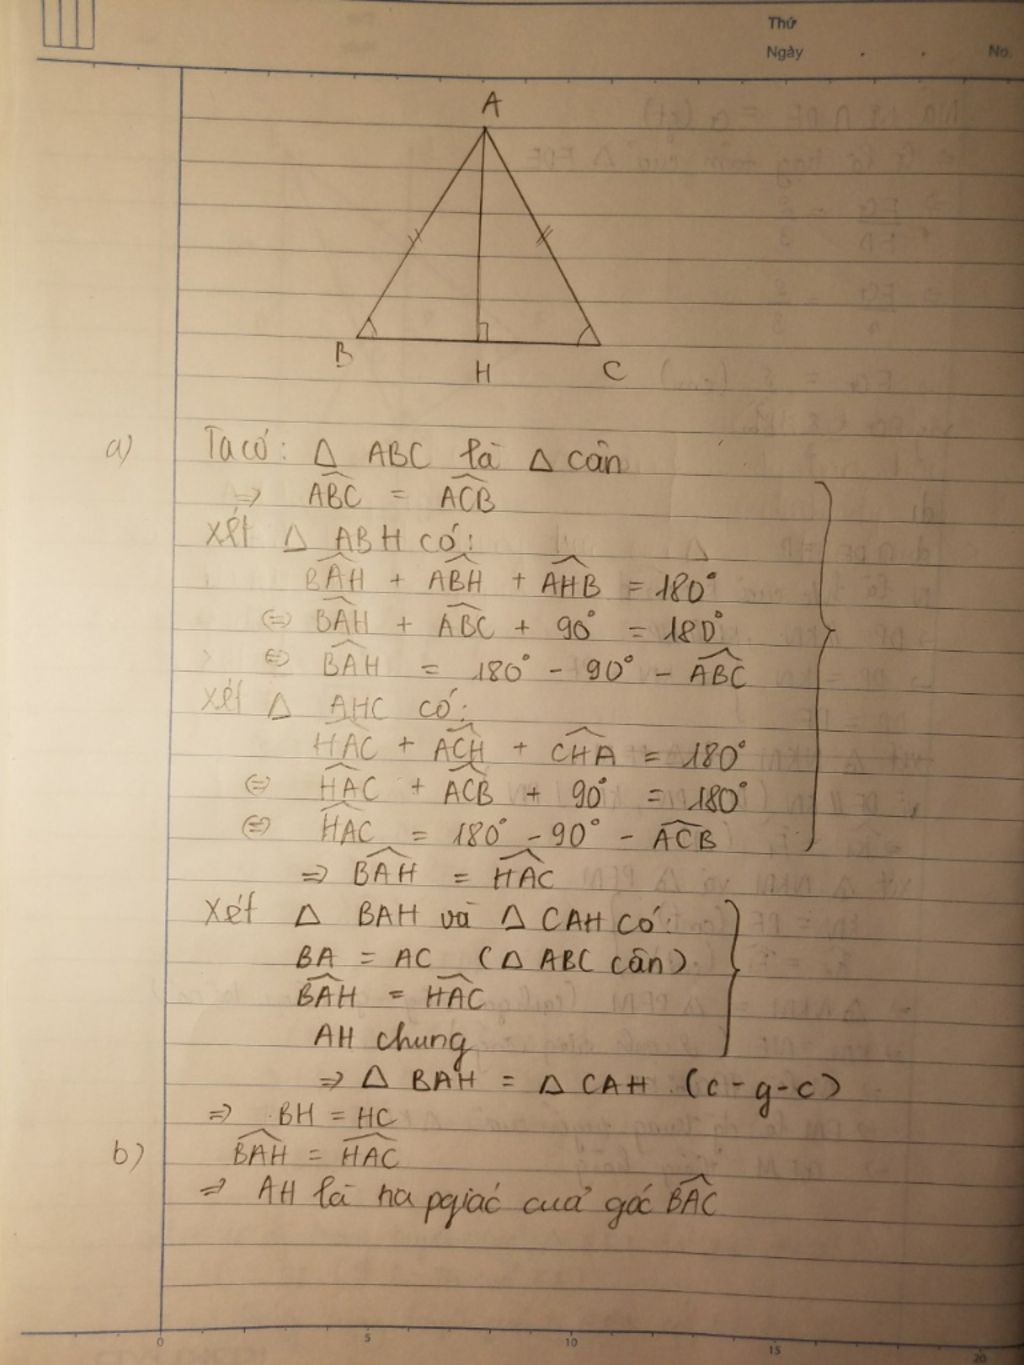 Thứ
Ngày . . No.
A
B
H
C
a) Ta có: △ ABC là △ cân
⇒ \widehat{ABC} = \widehat{ACB}
Xét △ ABH có:
\widehat{BAH} + \widehat{ABH} + \widehat{AHB} = 180°
⇔ \widehat{BAH} + \widehat{ABC} + 90° = 180°
⇔ \widehat{BAH} = 180° - 90° - \widehat{ABC}
Xét △ AHC có:
\widehat{HAC} + \widehat{ACH} + \widehat{CHA} = 180°
⇔ \widehat{HAC} + \widehat{ACB} + 90° = 180°
⇔ \widehat{HAC} = 180° - 90° - \widehat{ACB}
⇒ \widehat{BAH} = \widehat{HAC}
Xét △ BAH và △ CAH có:
BA = AC (△ ABC cân)
\widehat{BAH} = \widehat{HAC}
AH chung
⇒ △ BAH = △ CAH (c-g-c)
⇒ BH = HC
b) \widehat{BAH} = \widehat{HAC}
⇒ AH là tia pgiác của góc \widehat{BAC}
0 5 10 15 20